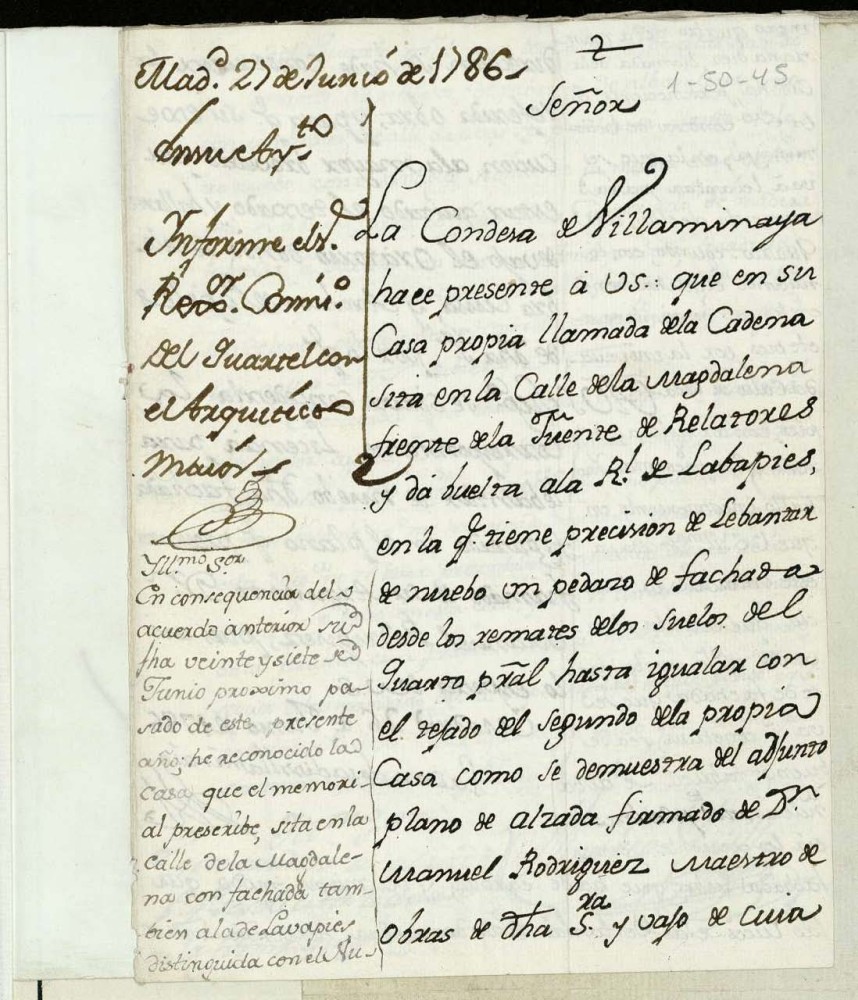 Mad.d 27 de Junio de 1786.
En su Ay.to
Informe el s.r
Rexo.or Comis.o
del quartel con
el Arquitecto
maior.
2
1-50-45
Señor
La Condesa de Villaminaya
hace presente á VS.: que en su
Casa propia llamada dela Cadena
sita en la Calle dela Magdalena
frente dela Fuente de Relatores
y dá buelta ala R.l de Labapies,
en la q.e tiene precision de Lebantar
de nuebo un pedazo de fachada
desde los remates delos suelos del
quarto pral hasta igualar con
el tejado del segundo dela propia
Casa como se demuestra del adjunto
plano de alzada firmado de D.n
Manuel Rodriguez Maestro de
Obras de dha S.ra y vajo de cuia
Yll.mo S.or
En consequencia del
acuerdo anterior su
fha veinte y siete de
Junio proximo pa-
sado de este presente
año; he reconocido la
casa que el memori-
al prescribe, sita en la
calle dela Magdale-
na con fachada tam-
bien ala de Lavapies
distinguida con el Nu-